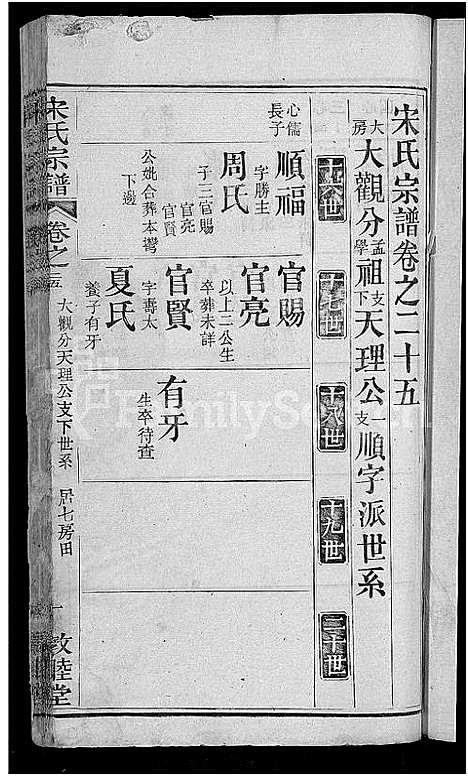 宋氏宗譜卷之二十五
大房大觀分孟學祖支下天理公一支順字派世系
十六世
十七世
十八世
十九世
二十世
心儒長子
順福
字勝主
子三官賜
官亮
官賢
周氏
公妣合葬本灣下邊
官賜
官亮
以上二公生卒葬未詳
官賢
字壽太
夏氏
養子有牙
有牙
生卒待查
宋氏宗譜
卷之二十五
大觀分天理公支下世系
居七房田
一
敦睦堂
FamilySearch